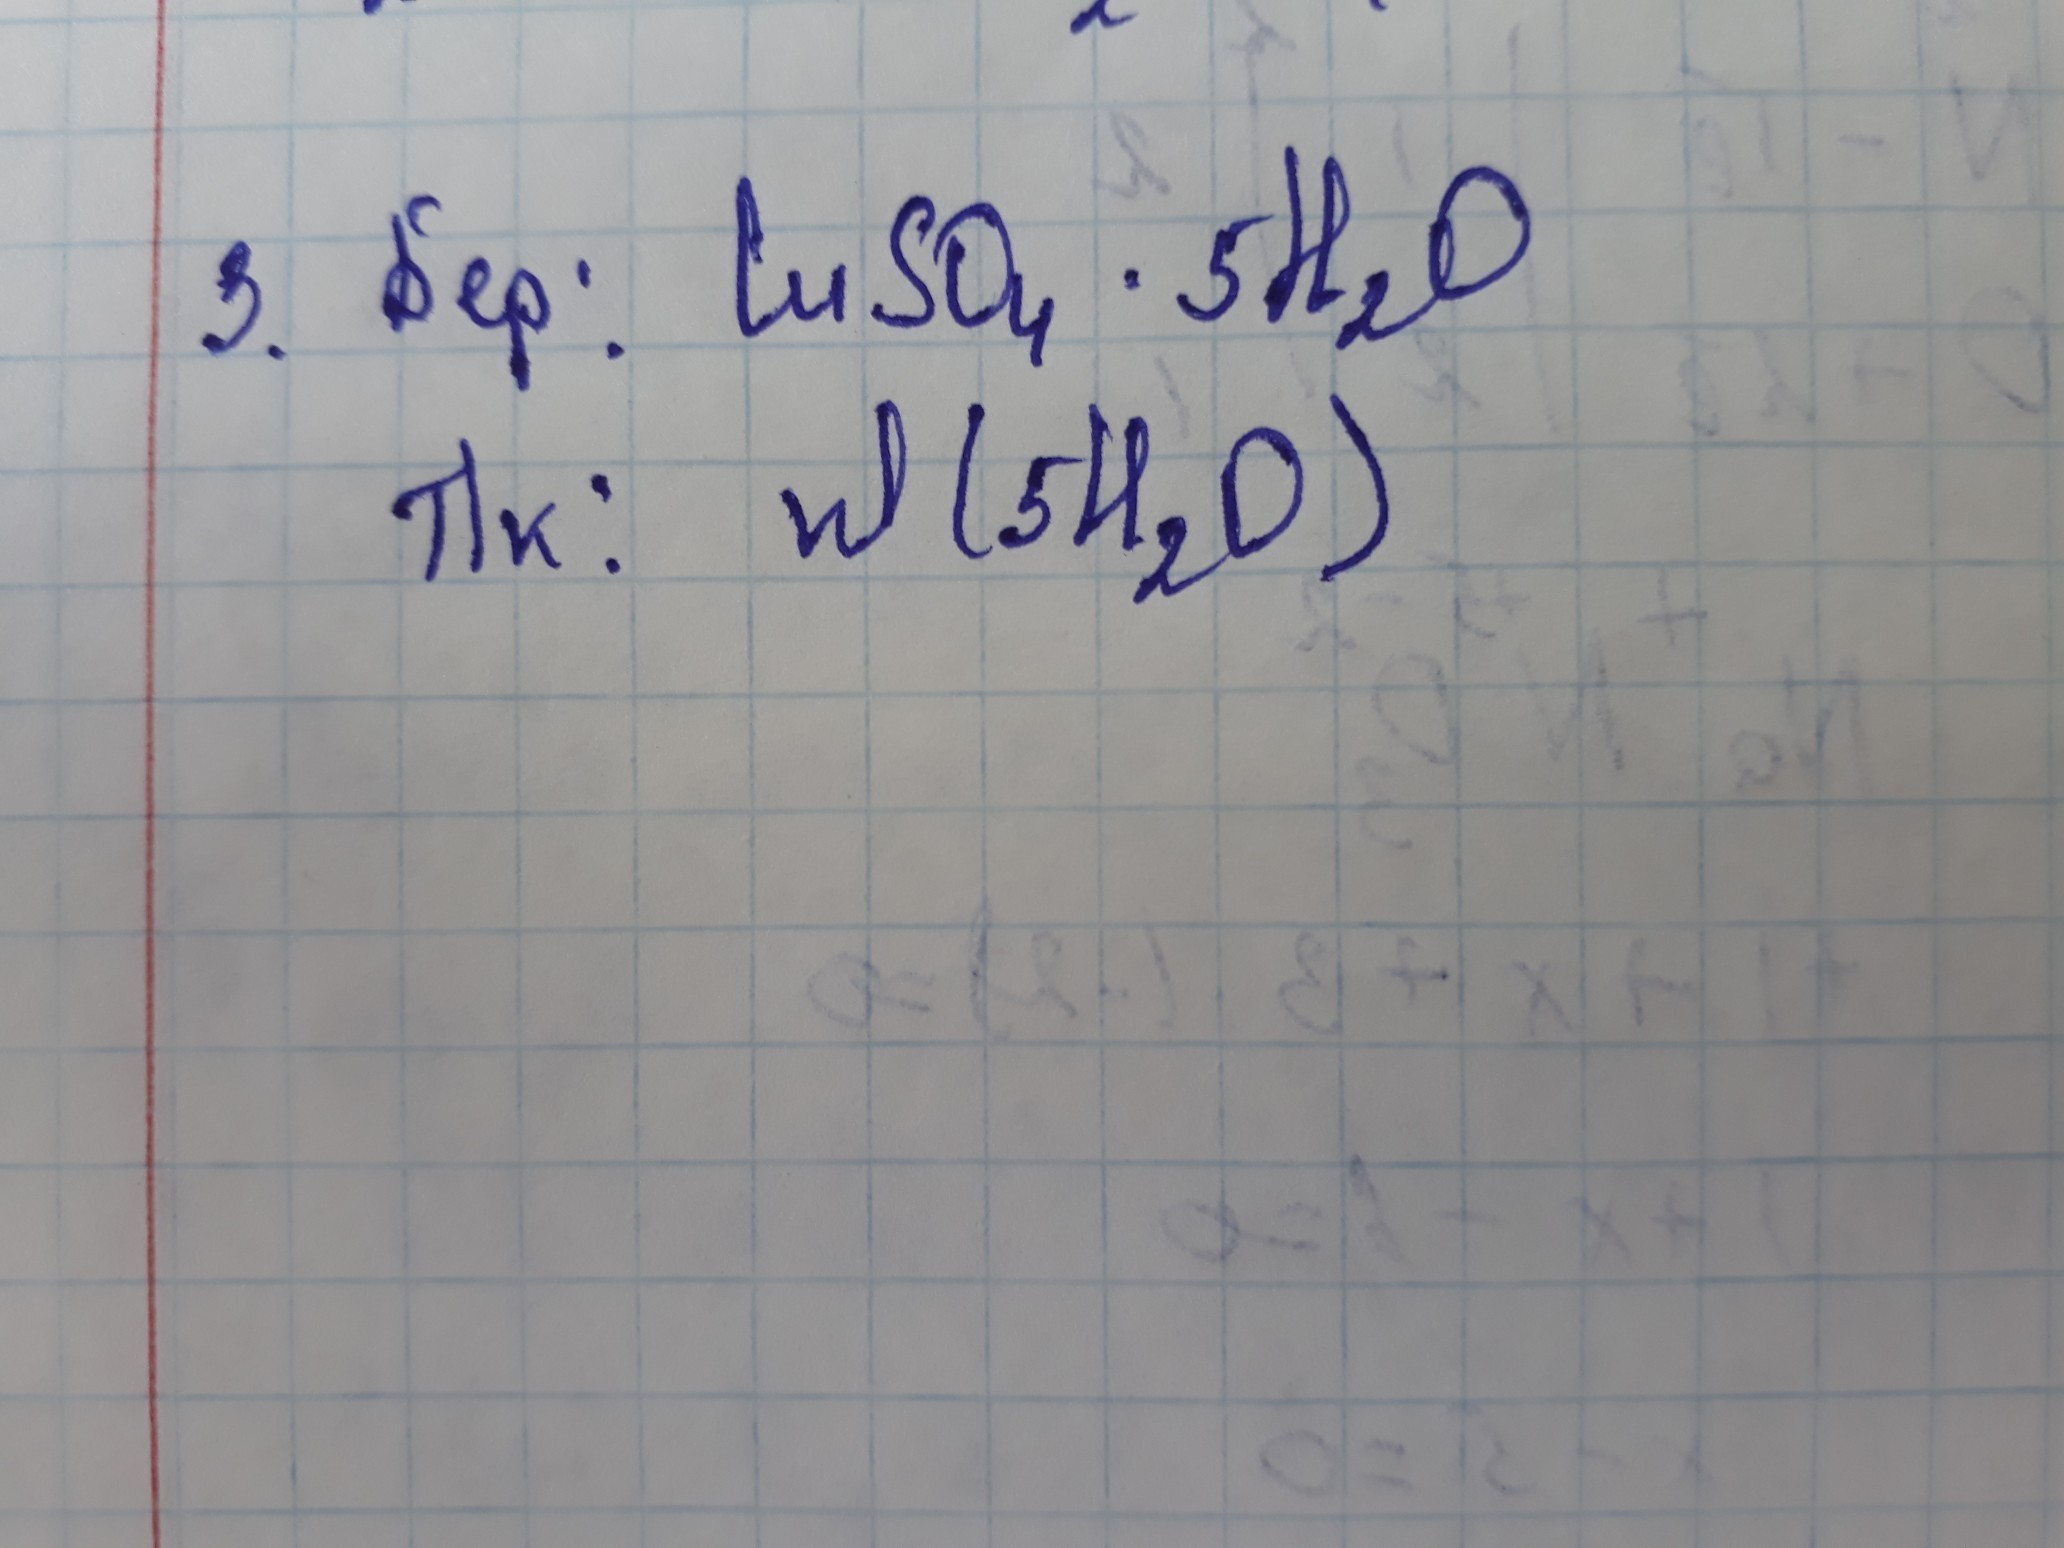 3. Бер: CuSO₄ · 5H₂O
Тк: W (5H₂O)